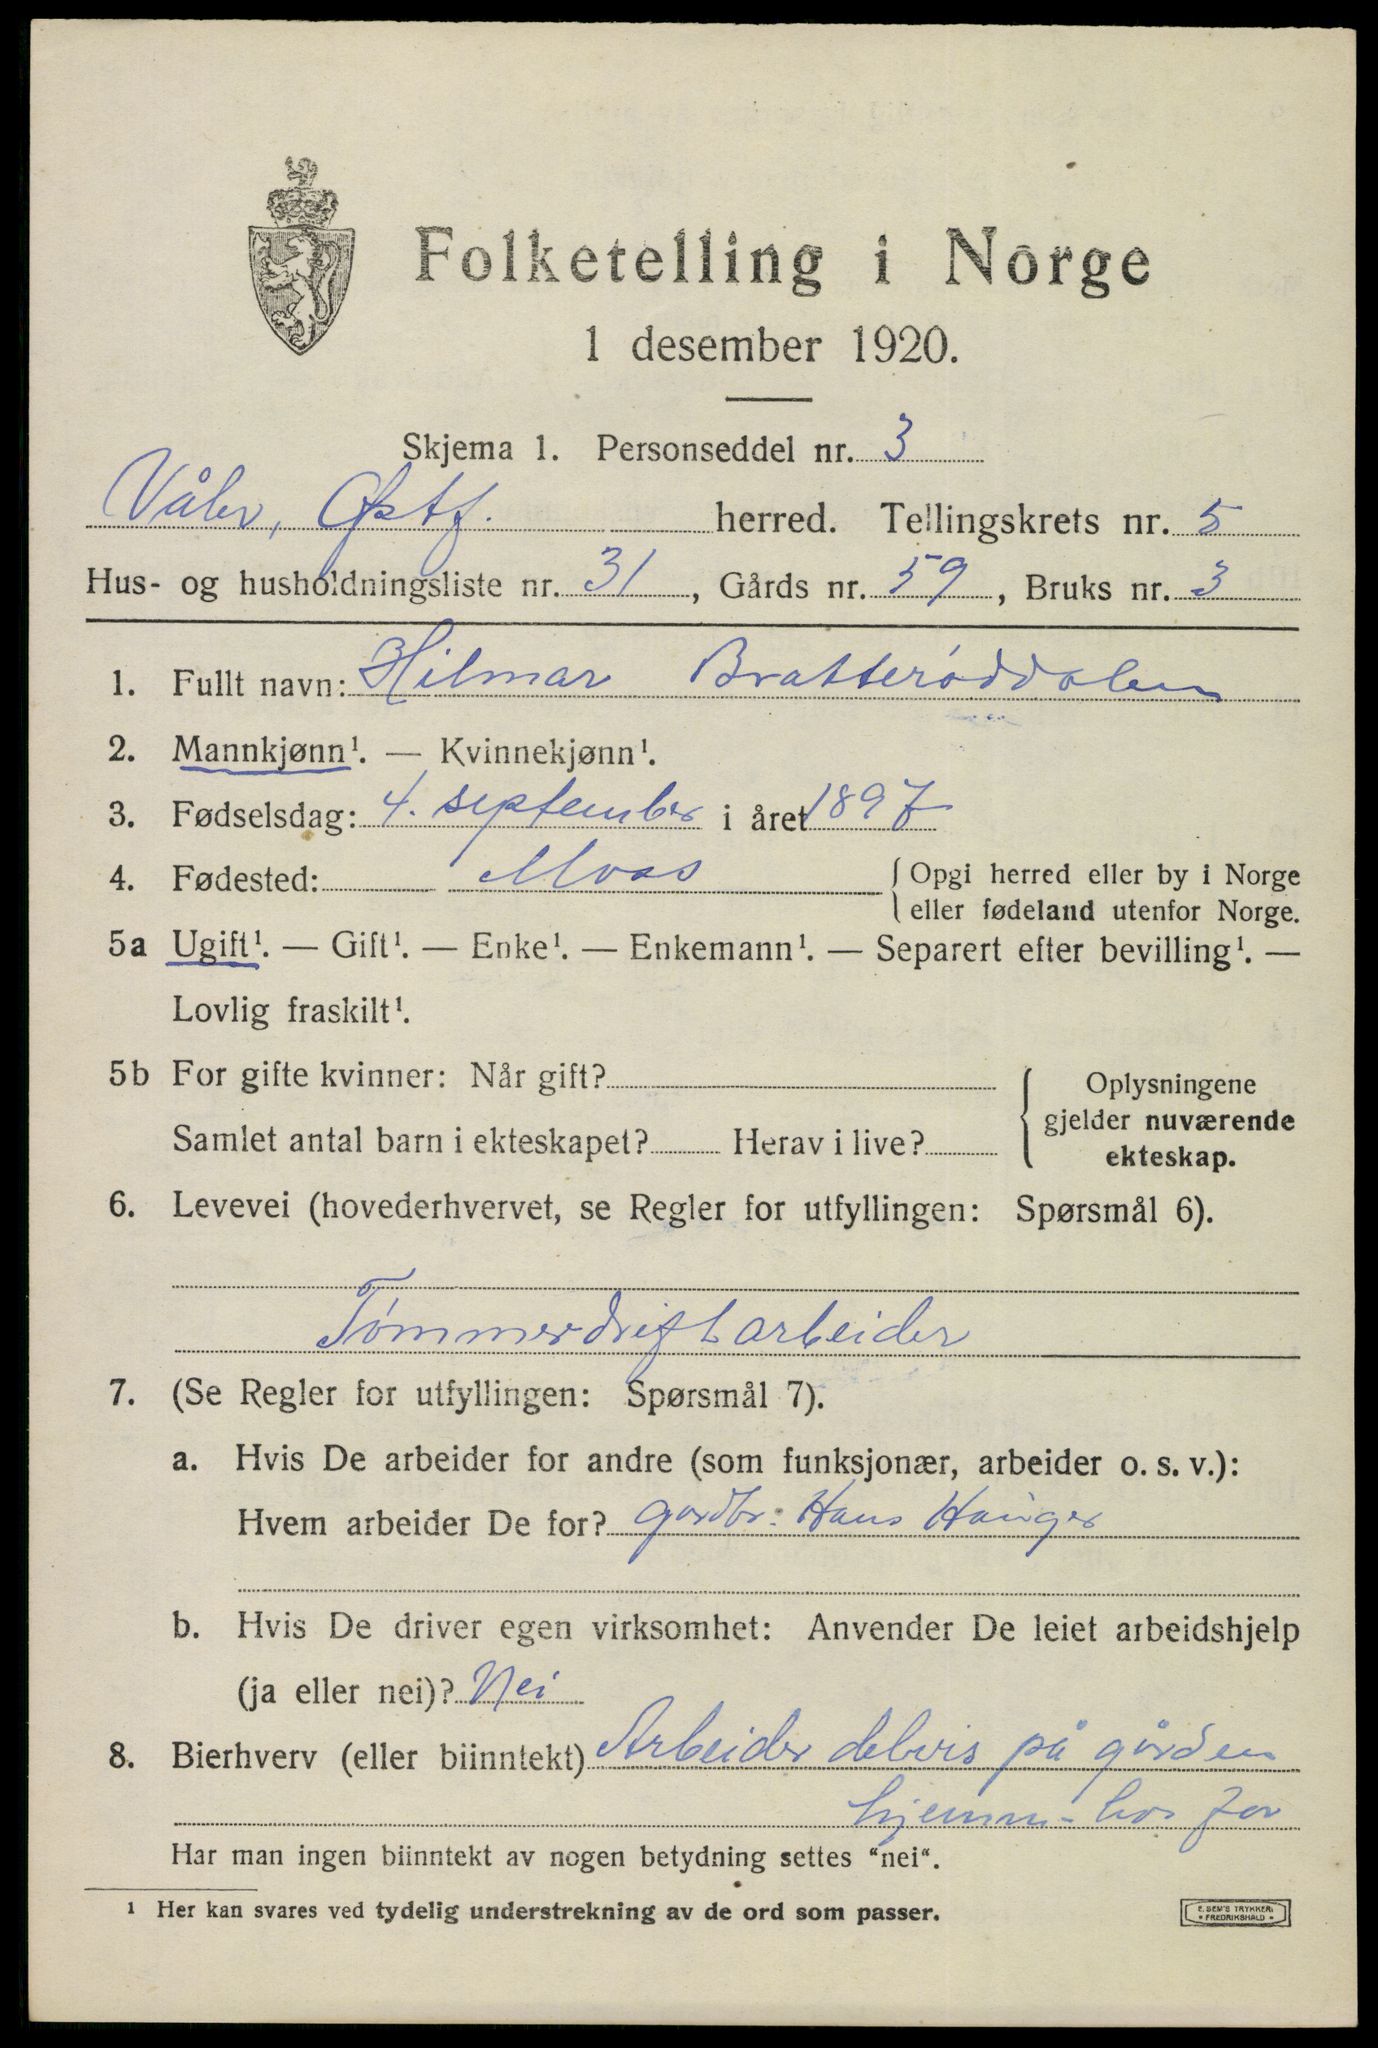 Folketelling i Norge
1 desember 1920.
Skjema 1. Personseddel nr. 3
Våler, Østf. herred. Tellingskrets nr. 5
Hus- og husholdningsliste nr. 31, Gårds nr. 59, Bruks nr. 3
1. Fullt navn: Hilmar Bratterøddalen
2. Mannkjønn¹. — Kvinnekjønn¹.
3. Fødselsdag: 4. september i året 1897
4. Fødested: Moss { Opgi herred eller by i Norge
eller fødeland utenfor Norge.
5a Ugift¹. — Gift¹. — Enke¹. — Enkemann¹. — Separert efter bevilling¹. —
Lovlig fraskilt¹.
5b For gifte kvinner: Når gift?
Samlet antal barn i ekteskapet? Herav i live?
{ Oplysningene
gjelder nuværende
ekteskap.
6. Levevei (hovederhvervet, se Regler for utfyllingen: Spørsmål 6).
Tømmerdriftarbeider
7. (Se Regler for utfyllingen: Spørsmål 7).
a. Hvis De arbeider for andre (som funksjonær, arbeider o. s. v.):
Hvem arbeider De for? gardbr: Hans Hauger
b. Hvis De driver egen virksomhet: Anvender De leiet arbeidshjelp
(ja eller nei)? Nei
8. Bierhverv (eller biinntekt) Arbeider delvis på gården
hjemme hos far
Har man ingen biinntekt av nogen betydning settes "nei".
¹ Her kan svares ved tydelig understrekning av de ord som passer.
E. SEM'S TRYKKERI
• FREDRIKSHALD •